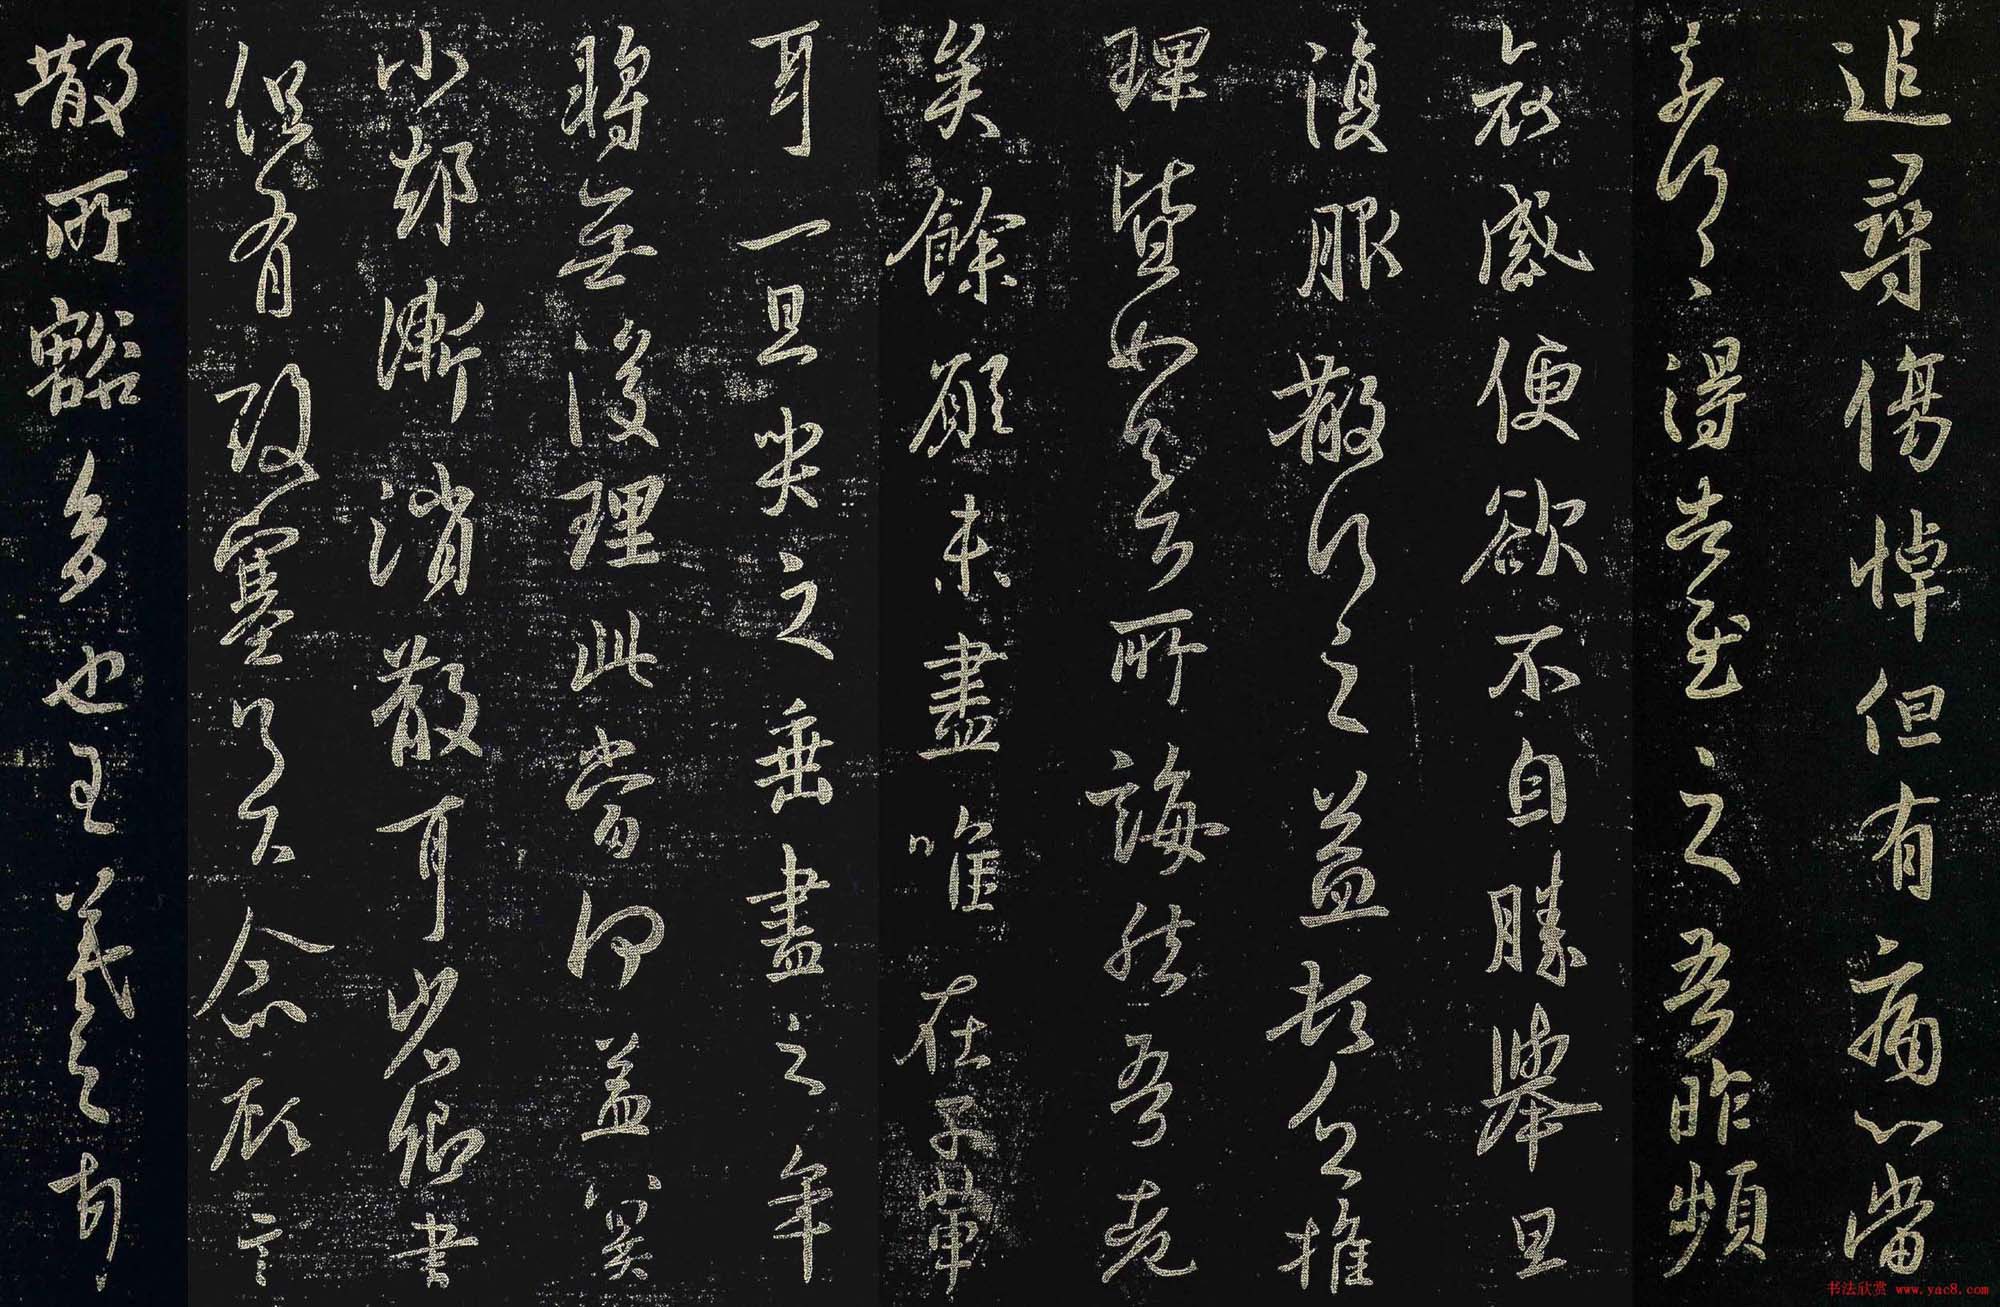 追尋傷悼但有痛心當
奈何奈何得告慰之吾昨頻
哀感便欲不自勝舉旦
復服散行之益頓乏推
理皆如足下所誨然吾老
矣餘願未盡唯在子輩
耳一旦哭之垂盡之年
將無復理此當何益冀
小却漸消散耳省卿書
但有酸塞足下念顧言
散所豁多也王羲之頓首
书法欣赏 www.yac8.com